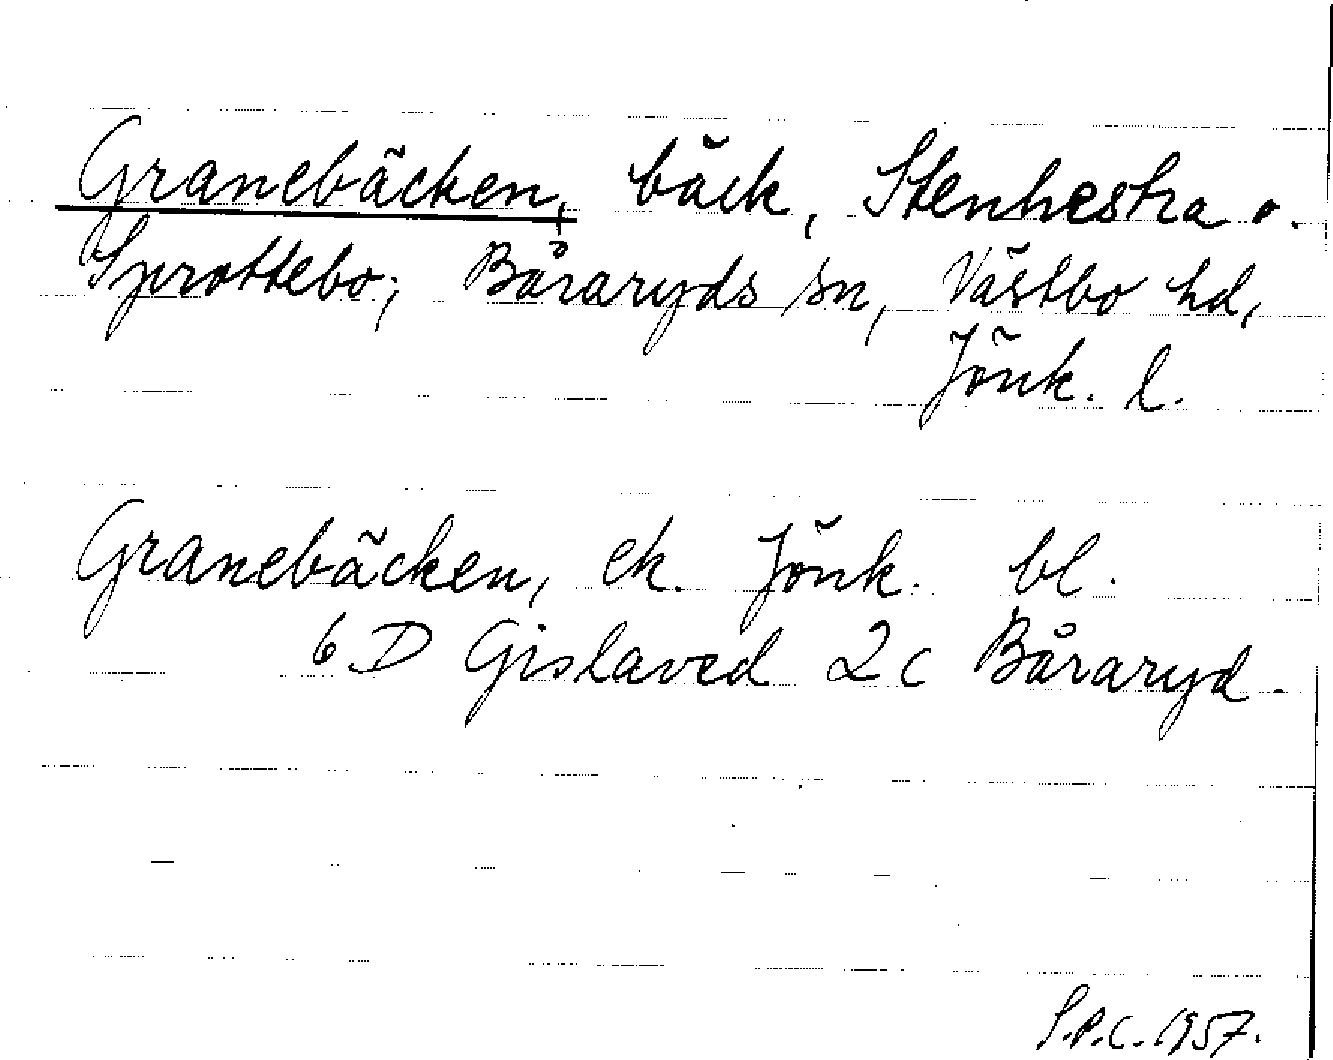 Granebäcken, bäck, Stenhestra o.
Sprottebo, Båraryds sn, Västbo hd,
Jönk. l.
Granebäcken, ek. Jönk. bl.
6 D Gislaved 2 c Båraryd.
S.P.C. 1957.